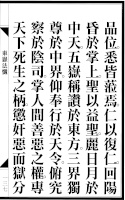 品位悉皆蒞焉仁以復仁回陽
昏於掌上聖以益聖麗日月於
中天五嶽稱讚於東方三界獨
尊於中界仰奉行於天令俯究
察於陰司掌人間善惡之權專
天下死生之柄懲奸惡而獄分
東嶽法懺